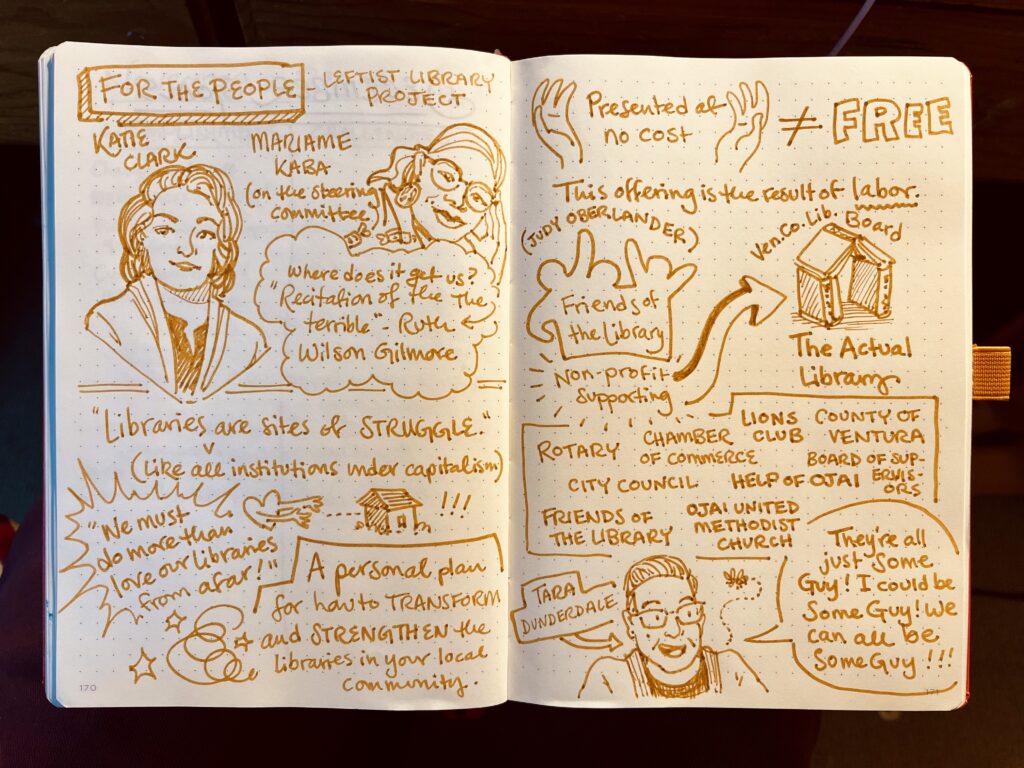 FOR THE PEOPLE - LEFTIST LIBRARY
PROJECT
KATIE
CLARK
MARIAME
KABA
(on the steering
committee)
Where does it get us?
"Recitation of the The
terrible" - Ruth
Wilson Gilmore
"Libraries are sites of STRUGGLE."
(Like all institutions under capitalism)
"We must
do more than
love our libraries
from afar!"
!!!
A personal plan
for how to TRANSFORM
and STRENGTHEN the
libraries in your local
community.
170
Presented at
no cost
≠ FREE
This offering is the result of labor.
(JUDY OBERLANDER)
Friends of
the Library
Non-profit
Supporting
Ven.Co.Lib. Board
The Actual
Library
ROTARY
CHAMBER
OF COMMERCE
LIONS
CLUB
COUNTY OF
VENTURA
BOARD OF SUP-
ERVIS-
ORS
CITY COUNCIL
HELP OF OJAI
FRIENDS OF
THE LIBRARY
OJAI UNITED
METHODIST
CHURCH
TARA
DUNDERDALE
They're all
just Some
Guy! I could be
Some Guy! We
can all be
Some Guy!!!
171